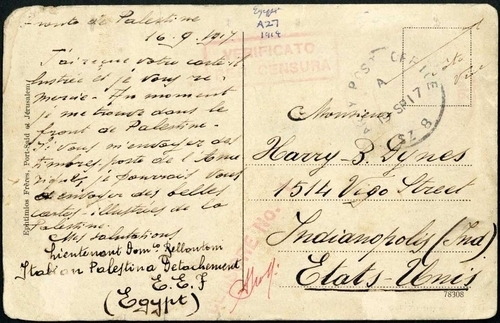 Fronte de Palestine
16-9-1917
J'ai reçu votre carte il-
lustrée et je vous re-
mercie. En moment
je me trouve dans le
front de Palestine.
Si vous m'envoyez des
timbres poste de l'Amé
je pourrais vous
envoyer des belles
cartes-illustrées de la
Palestine.
Mes salutations
Lieutenant Dom.co
Italian Palestina Detachement
E. E. F
(Egypt)
Egypt
A27
1917
VERIFICATO
CENSURA
POST
SERVICE
A
SP 17
SZ 8
Monsieur
Harry B. Dynes
1514 Vigo Street
Indianapolis (Ind)
États-Unis
78308
Ephtimios Frères, Port-Saïd et Jérusalem